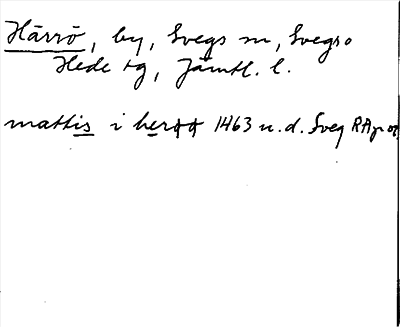 Härrö, by, Svegs sn, Svegs o
Hede tg, Jämtl. l.
mattis i herøø 1463 u.d. Sveg RAp or